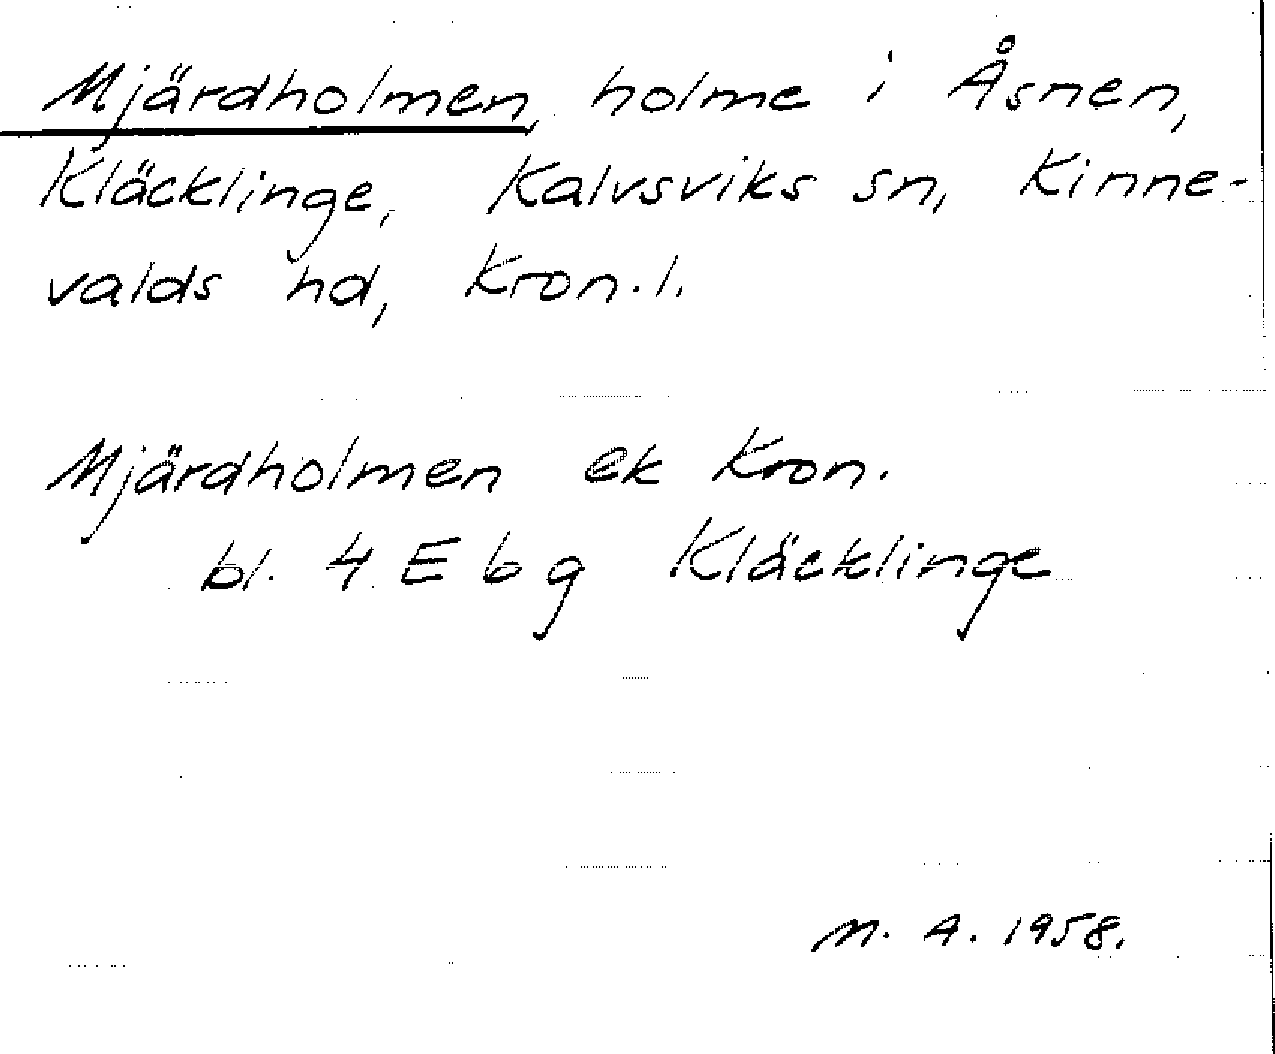 Mjärdholmen, holme i Åsnen,
Kläcklinge, Kalvsviks sn, Kinne-
valds hd, Kron.l.
Mjärdholmen ek Kron.
bl. 4 E 6 g Kläcklinge
M. A. 1958.